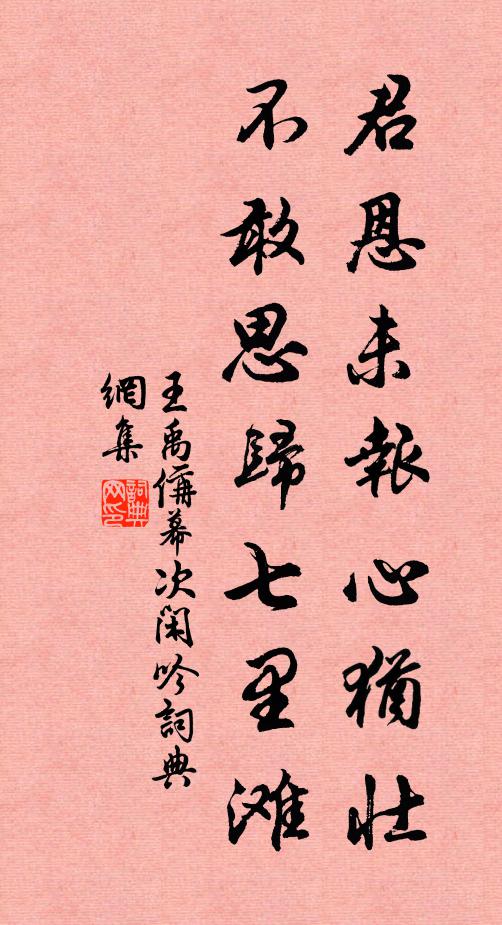 君恩未報心猶壯
不敢思歸七里滩
王禹偁幕次閑吟詞典
網集
詞典
网印